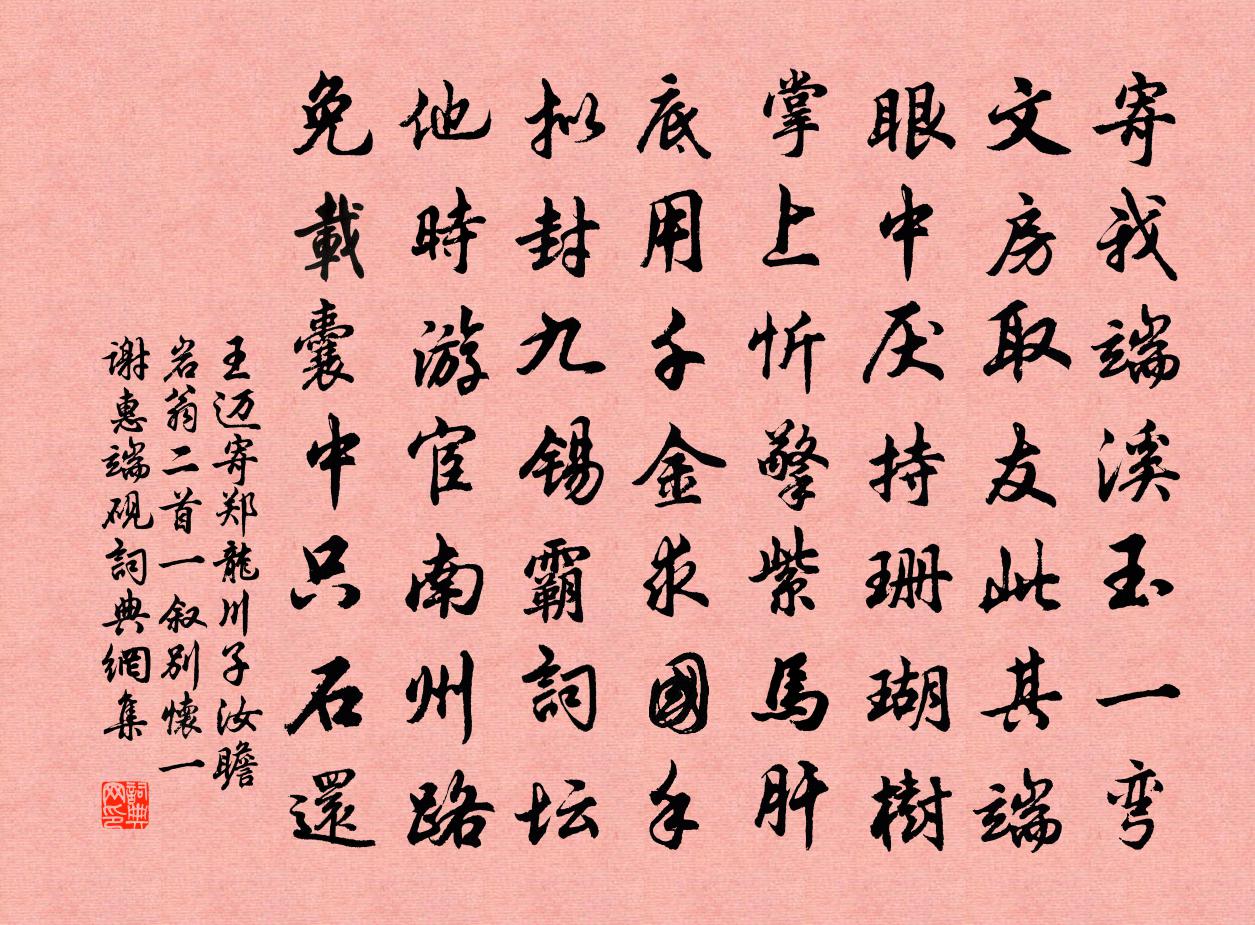 寄我端溪玉一弯
文房取友此其端
眼中厌持珊瑚樹
掌上忻擎紫馬肝
底用千金求國手
拟封九锡霸詞坛
他時游宦南州路
免載囊中只石還
王迈寄郑龍川子汝瞻
岩翁二首一叙别懷一
谢惠端砚詞典網集
詞典网印